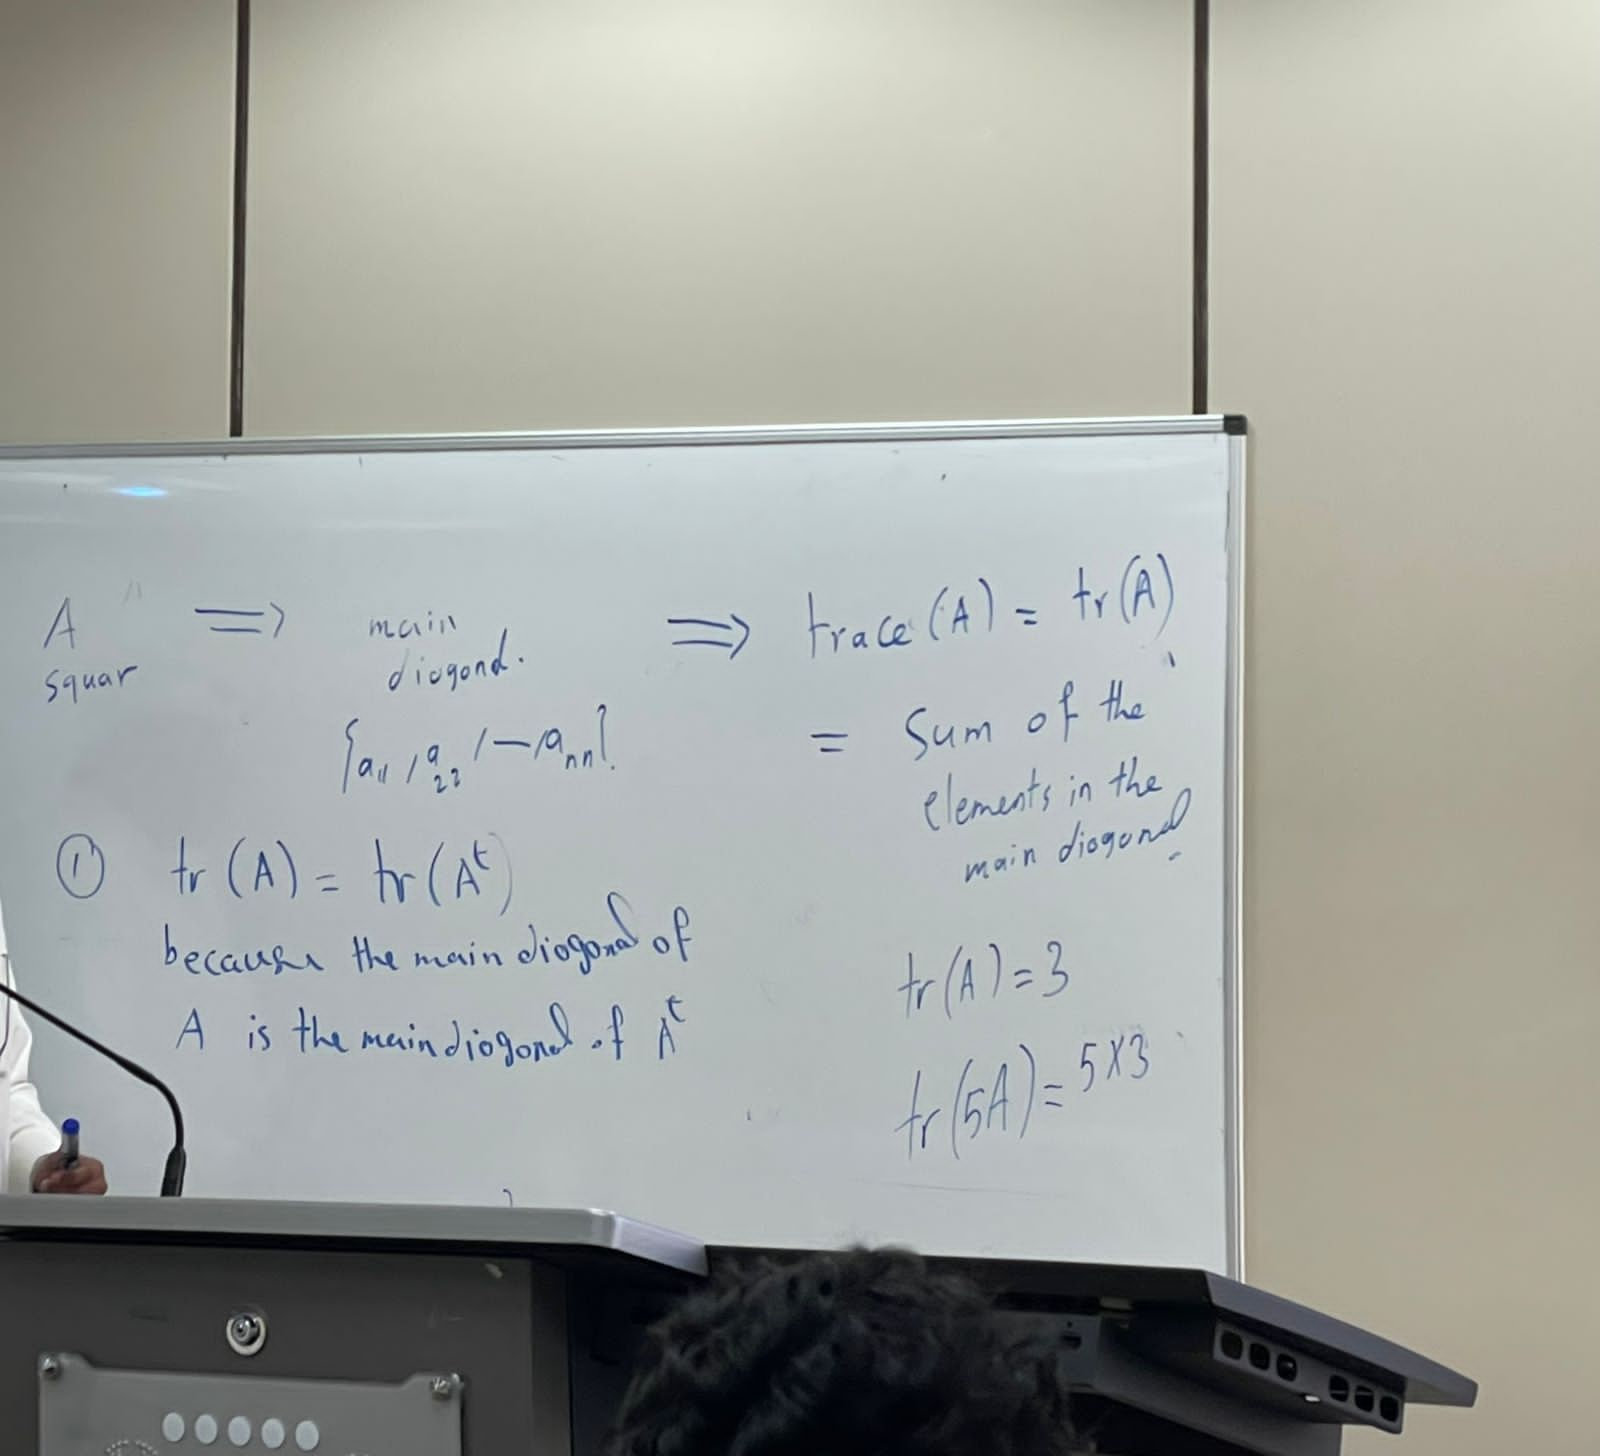 A ⟹ main ⟹ trace(A) = tr(A)
squar diogond.
{a₁₁, a₂₂, — , aₙₙ}. = Sum of the
elements in the
main diogonal
① tr(A) = tr(Aᵗ)
because the main diogonal of
A is the main diogonal of Aᵗ
tr(A) = 3
tr(5A) = 5×3